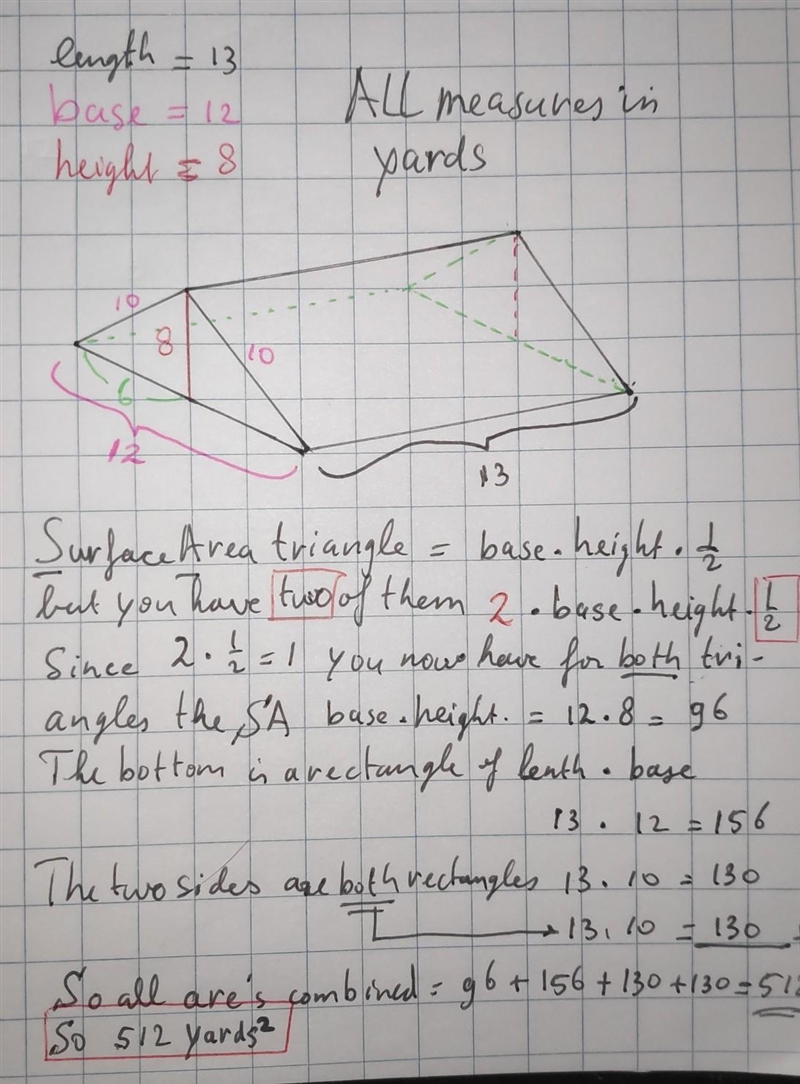 length = 13
base = 12
height = 8
ALL measures in
yards
10
8
10
6
12
13
Surface Area triangle = base · height · 1/2
but you have two of them 2 · base · height · 1/2
Since 2 · 1/2 = 1 you now have for both tri-
angles the SA base · height · = 12 · 8 = 96
The bottom is a rectangle of lenth · base
13 · 12 = 156
The two sides are both rectangles 13 · 10 = 130
13 · 10 = 130
So all are's combined = 96 + 156 + 130 + 130 = 512
So 512 yards²